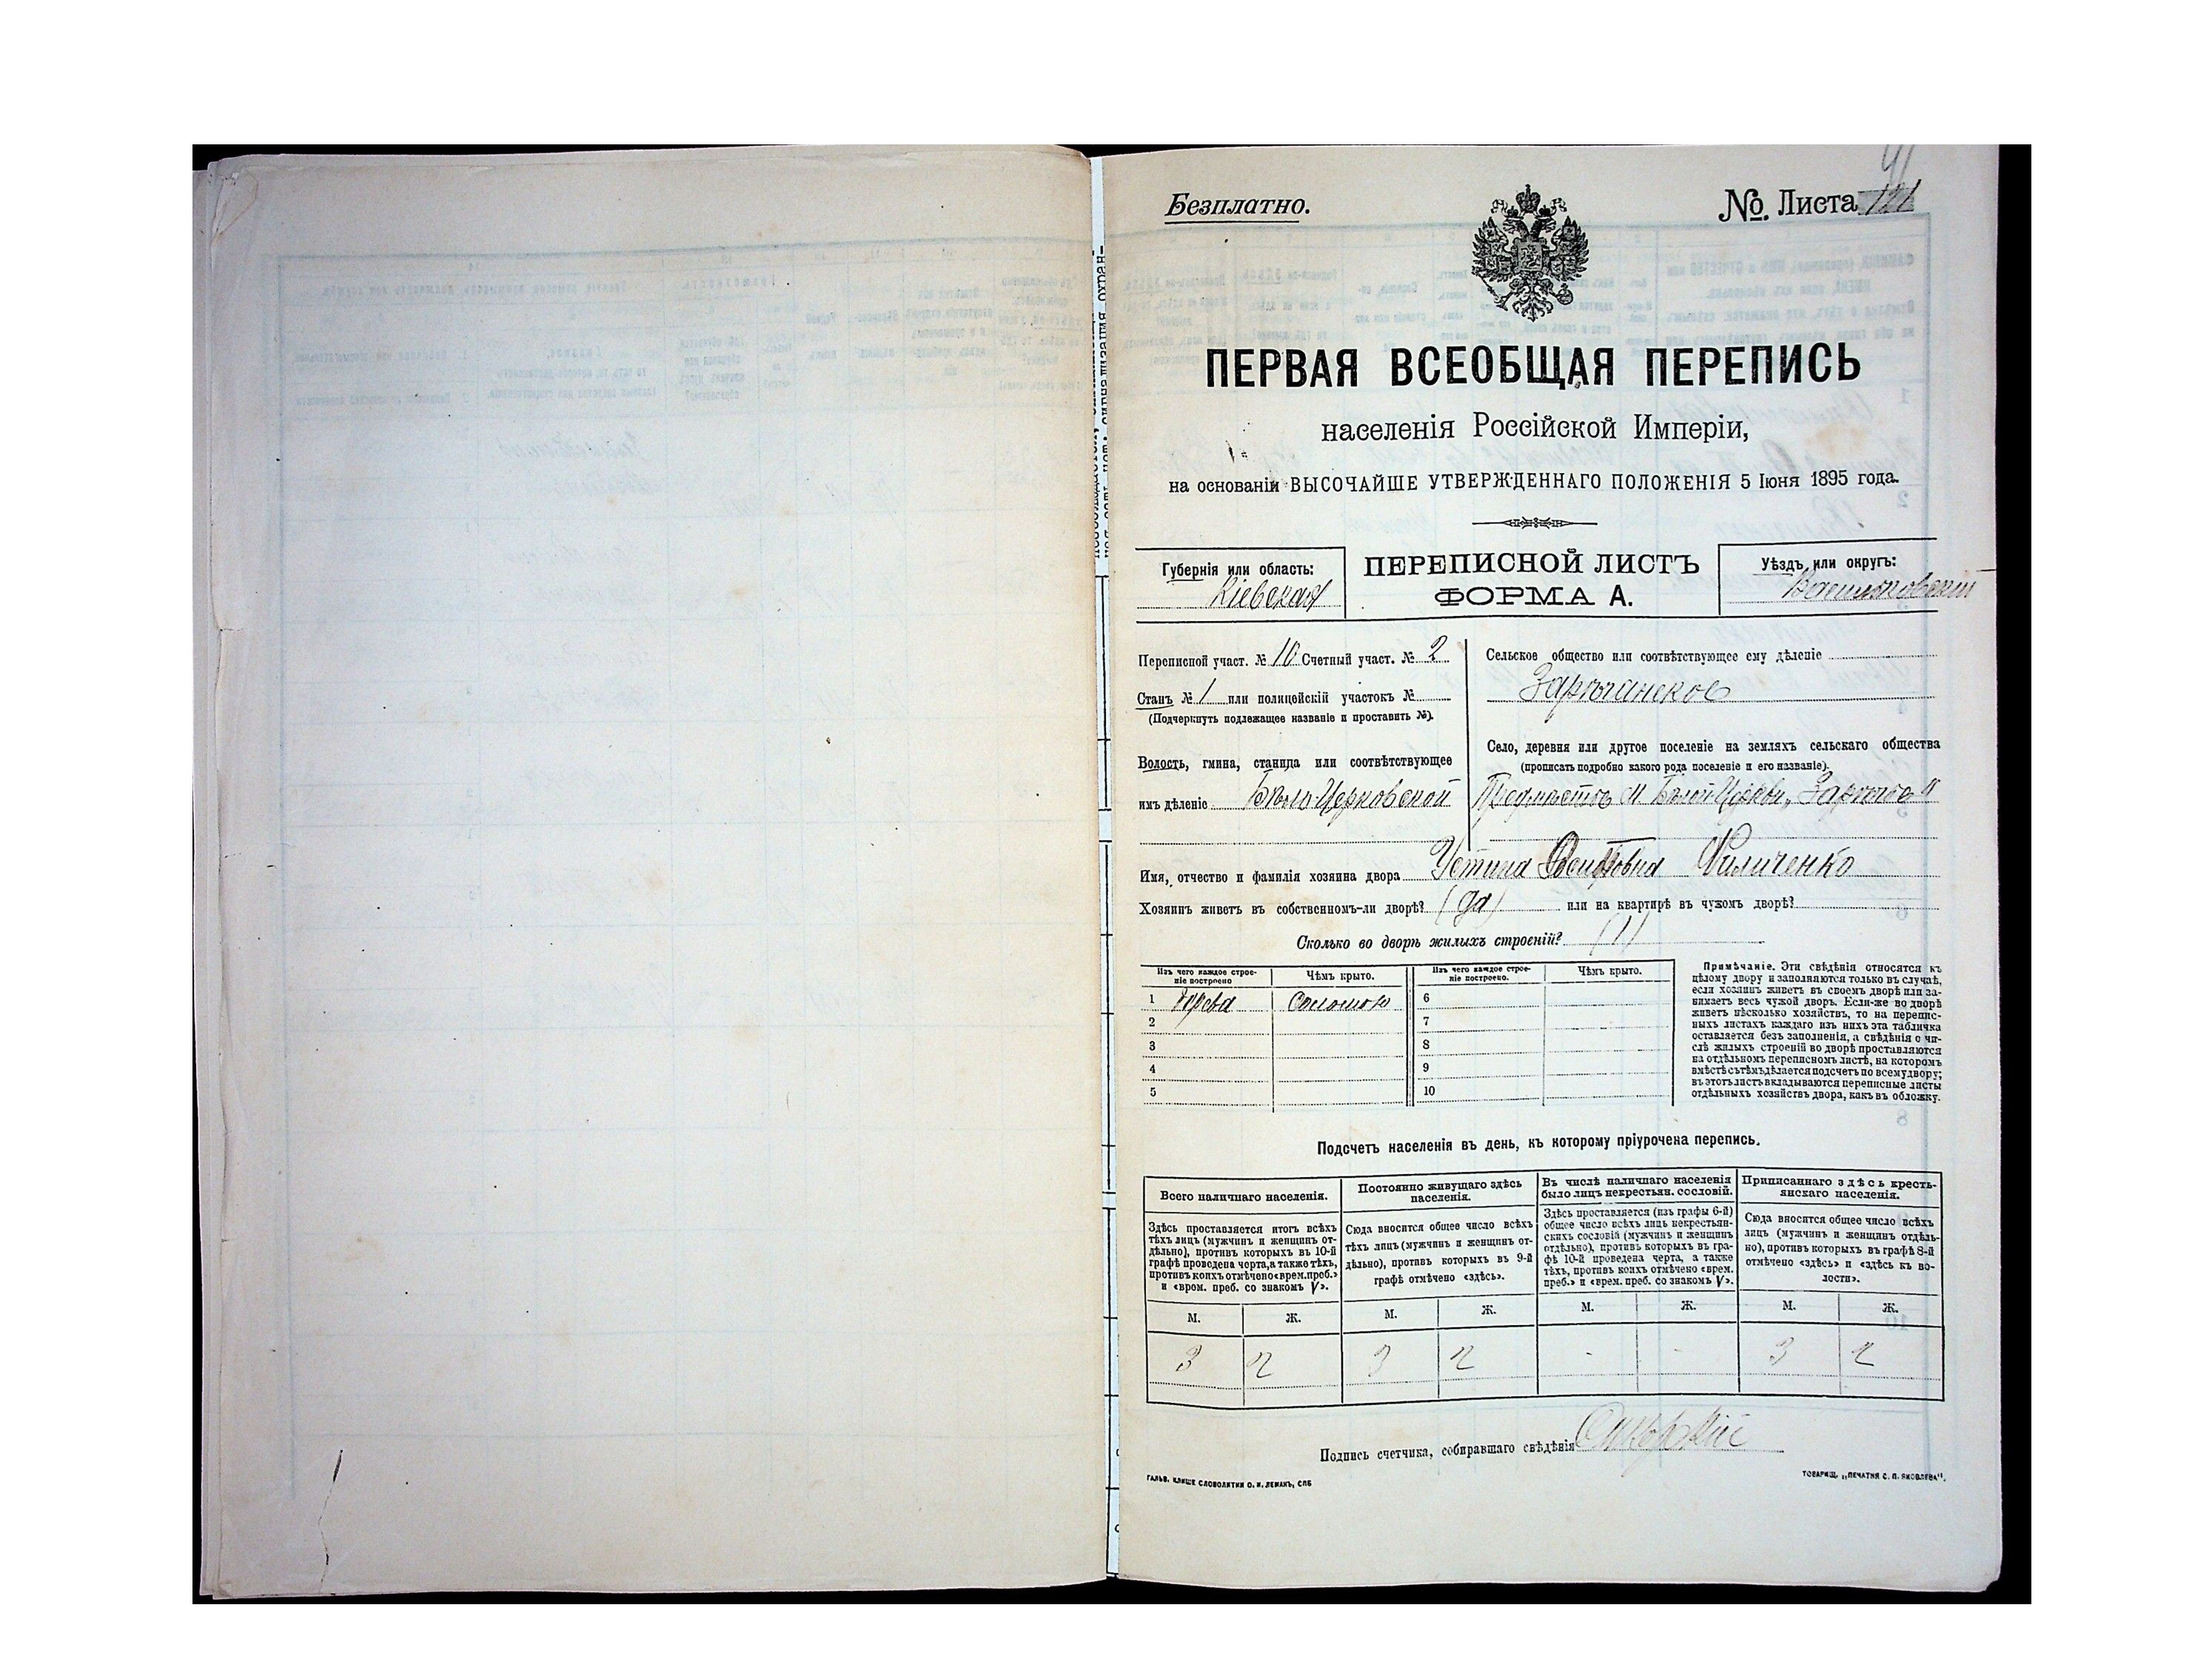 Безплатно.
№. Листа 121
91
ПЕРВАЯ ВСЕОБЩАЯ ПЕРЕПИСЬ
населенія Россійской Имперіи,
на основаніи ВЫСОЧАЙШЕ УТВЕРЖДЕННАГО ПОЛОЖЕНІЯ 5 Іюня 1895 года.
Губернія или область:
Кіевская
ПЕРЕПИСНОЙ ЛИСТЪ
ФОРМА А.
Уѣздъ или округъ:
Васильковскій
Переписной участ. № 10 Счетный участ. № 2
Станъ № 1 или полицейскій участокъ №
(Подчеркнуть подлежащее названіе и проставить №).
Волость, гмина, станица или соотвѣтствующее
имъ дѣленіе Бѣло Церковской
Сельское общество или соотвѣтствующее ему дѣленіе
Зарѣчанское
Село, деревня или другое поселеніе на земляхъ сельскаго общества
(прописать подробно какого рода поселеніе и его названіе).
Предмѣстье м. Бѣлой Церкви „Зарѣчье"
Имя, отчество и фамилія хозяина двора Устина Филиченко
Хозяинъ живетъ въ собственномъ-ли дворѣ? (да) или на квартирѣ въ чужомъ дворѣ?
Сколько во дворѣ жилыхъ строеній? (1)
Изъ чего каждое строе-
ніе построено
Чѣмъ крыто.
Изъ чего каждое строе-
ніе построено.
Чѣмъ крыто.
1 дерева Соломою 6
2 7
3 8
4 9
5 10
Примѣчаніе. Эти свѣдѣнія относятся къ
цѣлому двору и заполняются только въ случаѣ,
если хозяинъ живетъ въ своемъ дворѣ или за-
нимаетъ весь чужой дворъ. Если-же во дворѣ
живетъ нѣсколько хозяйствъ, то на перепис-
ныхъ листахъ каждаго изъ нихъ эта табличка
оставляется безъ заполненія, а свѣдѣнія о чи-
слѣ жилыхъ строеній во дворѣ проставляются
на отдѣльномъ переписномъ листѣ, на которомъ
вмѣстѣ съ тѣмъ дѣлается подсчетъ по всему двору;
въ этотъ листъ вкладываются переписные листы
отдѣльныхъ хозяйствъ двора, какъ въ обложку.
Подсчетъ населенія въ день, къ которому пріурочена перепись.
Всего наличнаго населенія.
Здѣсь проставляется итогъ всѣхъ
тѣхъ лицъ (мужчинъ и женщинъ от-
дѣльно), противъ которыхъ въ 10-й
графѣ проведена черта, а также тѣхъ,
противъ коихъ отмѣчено «врем. преб.»
и «врем. преб. со знакомъ V».
Постоянно живущаго здѣсь
населенія.
Сюда вносится общее число всѣхъ
тѣхъ лицъ (мужчинъ и женщинъ от-
дѣльно), противъ которыхъ въ 9-й
графѣ отмѣчено «здѣсь».
Въ числѣ наличнаго населенія
было лицъ некрестьян. сословій.
Здѣсь проставляется (изъ графы 6-й)
общее число всѣхъ лицъ некрестьян-
скихъ сословій (мужчинъ и женщинъ
отдѣльно), противъ которыхъ въ гра-
фѣ 10-й проведена черта, а также
тѣхъ, противъ коихъ отмѣчено «врем.
преб.» и «врем. преб. со знакомъ V».
Приписаннаго здѣсь кресть-
янскаго населенія.
Сюда вносится общее число всѣхъ
лицъ (мужчинъ и женщинъ отдѣль-
но), противъ которыхъ въ графѣ 8-й
отмѣчено «здѣсь» и «здѣсь къ во-
лости».
М. Ж. М. Ж. М. Ж. М. Ж.
3 2 3 2 - - 3 2
Подпись счетчика, собиравшаго свѣдѣнія
ГАЛЬВ. КЛИШЕ СЛОВОЛИТНИ О. И. ЛЕМАНЪ, СПБ
ТОВАРИЩ. „ПЕЧАТНЯ С. П. ЯКОВЛЕВА".